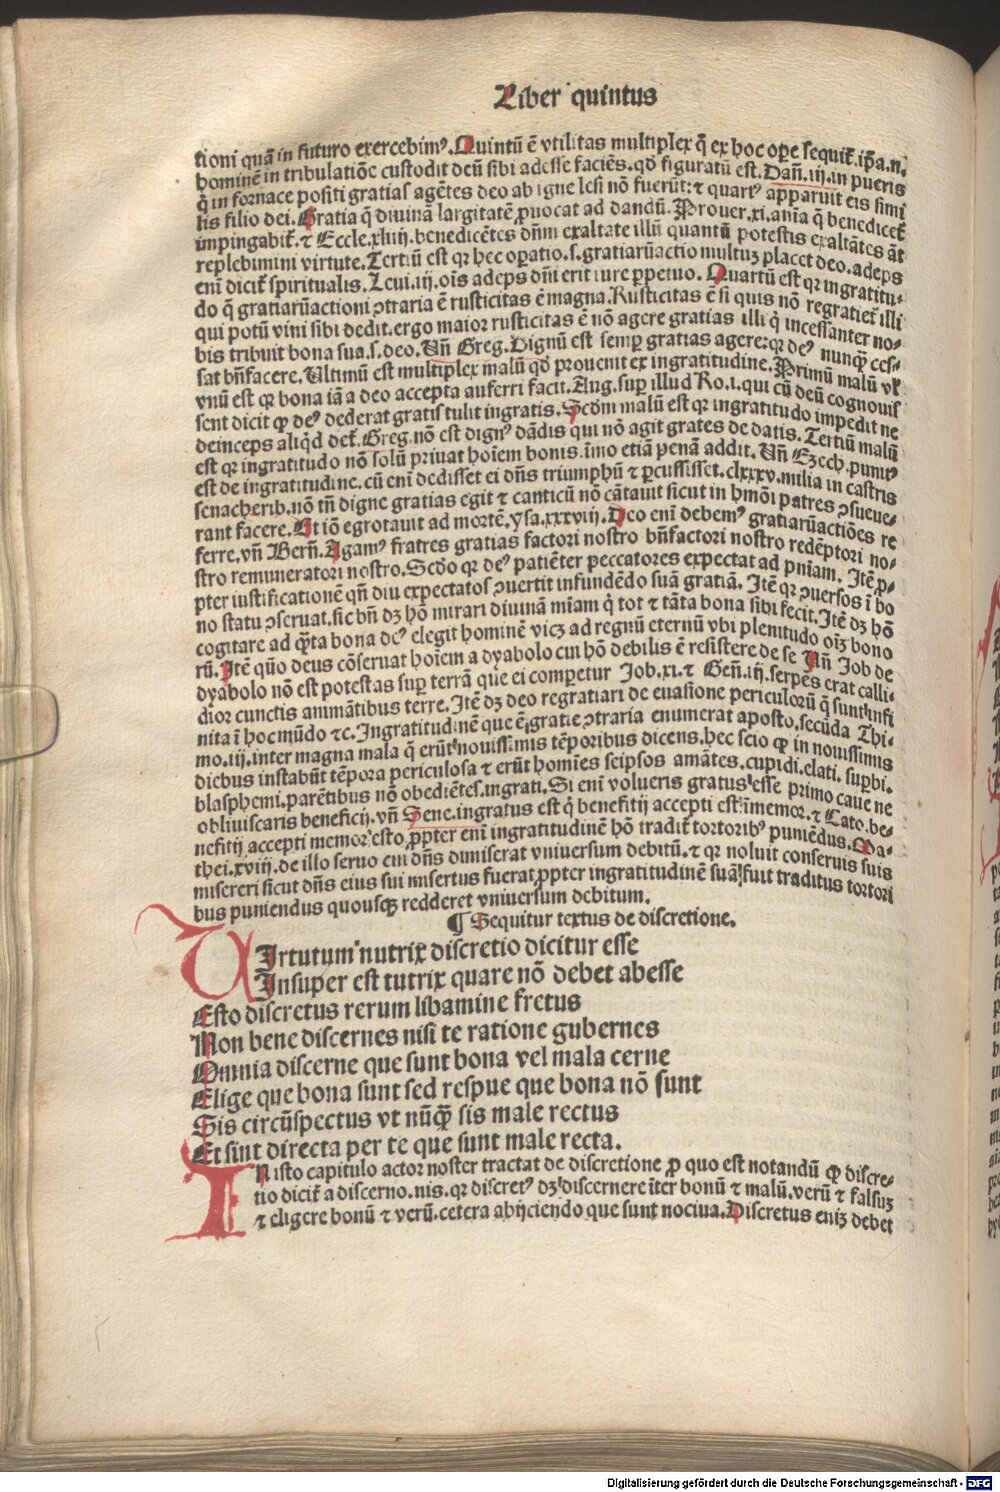 Liber quintus
tioni quã in futuro exercebimꝰ. Quintũ ẽ vtilitas multiplex q̃ ex hoc oꝑe sequit̃. ip̃a.n.
hominẽ in tribulatiõe custodit deũ sibi adesse faciẽs. qđ figuratũ est. Dañ.iij. in pueris
q̇ in fornace positi gratias agẽtes deo ab igne lesi nõ fuerũt: ⁊ quartꝰ apparuit eis simi
lis filio dei. Gratia q̃ diuinã largitatẽ ꝓuocat ad dandũ. Prouer.xi. aĩa q̃ benedicet̃
impingabit̃. ⁊ Eccle.xliij. benedicẽtes dñm exaltate illũ quantũ potestis exaltãtes ãt
replebimini virtute. Tertiũ est qꝛ hec oꝑatio .s. gratiarũactio multuꝫ placet deo. adeps
enĩ dicit̃ spiritualis. Leui.iij. oĩs adeps dñi erit iure ꝑpetuo. Quartũ est qꝛ ingratitu-
do q̃ gratiarũactioni ꝯtraria ẽ rusticitas ẽ magna. Rusticitas ẽ si quis nõ regratiet̃ illi
qui potũ vini sibi dedit. ergo maior rusticitas ẽ nõ agere gratias illi q̇ incessanter no-
bis tribuit bona sua .s. deo. Vñ Greg. Dignũ est semꝑ gratias agere: qꝛ deꝰ nunqꝫ ces-
sat bñfacere. Vltimũ est multiplex malũ qđ prouenit ex ingratitudine. Primũ malũ vĺ
vnũ est qꝛ bona iã a deo accepta auferri facit. Aug. suꝑ illud Ro.i. qui cũ deũ cognouis
sent dicit ꝙ deꝰ dederat gratis tulit ingratis. Scđm malũ est qꝛ ingratitudo impedit ne
deinceps aliq̇d det̃. Greg. nõ est dignꝰ dãdis qui nõ agit grates de datis. Tertiũ malũ
est qꝛ ingratitudo nõ solũ priuat hoĩem bonis. ĩmo etiã penã addit. Vñ Ezech. punitꝰ
est de ingratitudine. cũ enĩ dedisset ei dñs triumphũ ⁊ ꝑcussisset. clxxxv. milia in castris
senacherib. nõ tñ digne gratias egit ⁊ canticũ nõ cãtauit sicut in hmõi patres ꝯsueue-
rant facere. Et iõ egrotauit ad mortẽ. ysa.xxxviij. Deo enĩ debemꝰ gratiarũactiões re
ferre. vñ Berñ. Agamꝰ fratres gratias factori nostro bñfactori nostro redẽptori no-
stro remuneratori nostro. Scđo qꝛ deꝰ patiẽter peccatores expectat ad pniam. Itẽ ꝓ-
pter iustificationẽ qñ diu expectatos ꝯuertit infundẽdo suã gratiã. Itẽ qꝛ ꝯuersos ĩ bo
no statu ꝯseruat. sic bñ dꝫ hõ mirari diuinã miam q̇ tot ⁊ tãta bona sibi fecit. Itẽ dꝫ hõ
cogitare ad q̃ta bona deꝰ elegit hominẽ vicꝫ ad regnũ eternũ vbi plenitudo oĩꝫ bono
rũ. Itẽ quõ deus cõseruat hoĩem a dyabolo cui hõ debilis ẽ resistere de se Vñ Job de
dyabolo nõ est potestas suꝑ terrã que ei comꝑetur Job.xi. ⁊ Geñ.iij. serpẽs erat calli-
dior cunctis animãtibus terre. Itẽ dꝫ deo regratiari de euasione periculorũ q̃ sunt infi
nita ĩ hoc mũdo ⁊c. Ingratitudinẽ que ẽ gratie ꝯtraria enumerat aposto. secũda Thi-
mo.iij. inter magna mala q̃ erũt nouissimis tẽporibus dicens. hec scio ꝙ in nouissimis
diebus instabũt tẽpora periculosa ⁊ erũt homĩes seipsos amãtes. cupidi. elati. suꝑbi.
blasphemi. parẽtibus nõ obediẽtes. ingrati. Si enĩ volueris gratus esse primo caue ne
obliuiscaris beneficij. vñ Sene. ingratus est q̇ benefitij accepti est ĩmemor. ⁊ Cato. be-
nefitij accepti memor esto ꝓpter enĩ ingratitudinẽ hõ tradit̃ tortoribꝰ puniẽdus. Ma-
thei.xviij. de illo seruo cui dñs dimiserat vniuersum debitũ. ⁊ qꝛ noluit conseruis suis
misereri sicut dñs eius sui misertus fuerat ꝓpter ingratitudinẽ suã fuit traditus tortori
bus puniendus quousqꝫ redderet vniuersum debitum.
¶ Sequitur textus de discretione.
VIrtutum nutrix discretio dicitur esse
Insuper est tutrix quare nõ debet abesse
Esto discretus rerum libamine fretus
Non bene discernes nisi te ratione gubernes
Omnia discerne que sunt bona vel mala cerne
Elige que bona sunt sed respue que bona nõ sunt
Sis circũspectus vt nũqꝫ sis male rectus
Et sint directa per te que sunt male recta.
IN isto capitulo actor noster tractat de discretione ꝓ quo est notandũ ꝙ discre-
tio dicit̃ a discerno.nis. qꝛ discretꝰ dꝫ discernere ĩter bonũ ⁊ malũ. verũ ⁊ falsuꝫ
⁊ eligere bonũ ⁊ verũ. cetera abijciendo que sunt nociua. Discretus eniꝫ debet
Digitalisierung gefördert durch die Deutsche Forschungsgemeinschaft - DFG